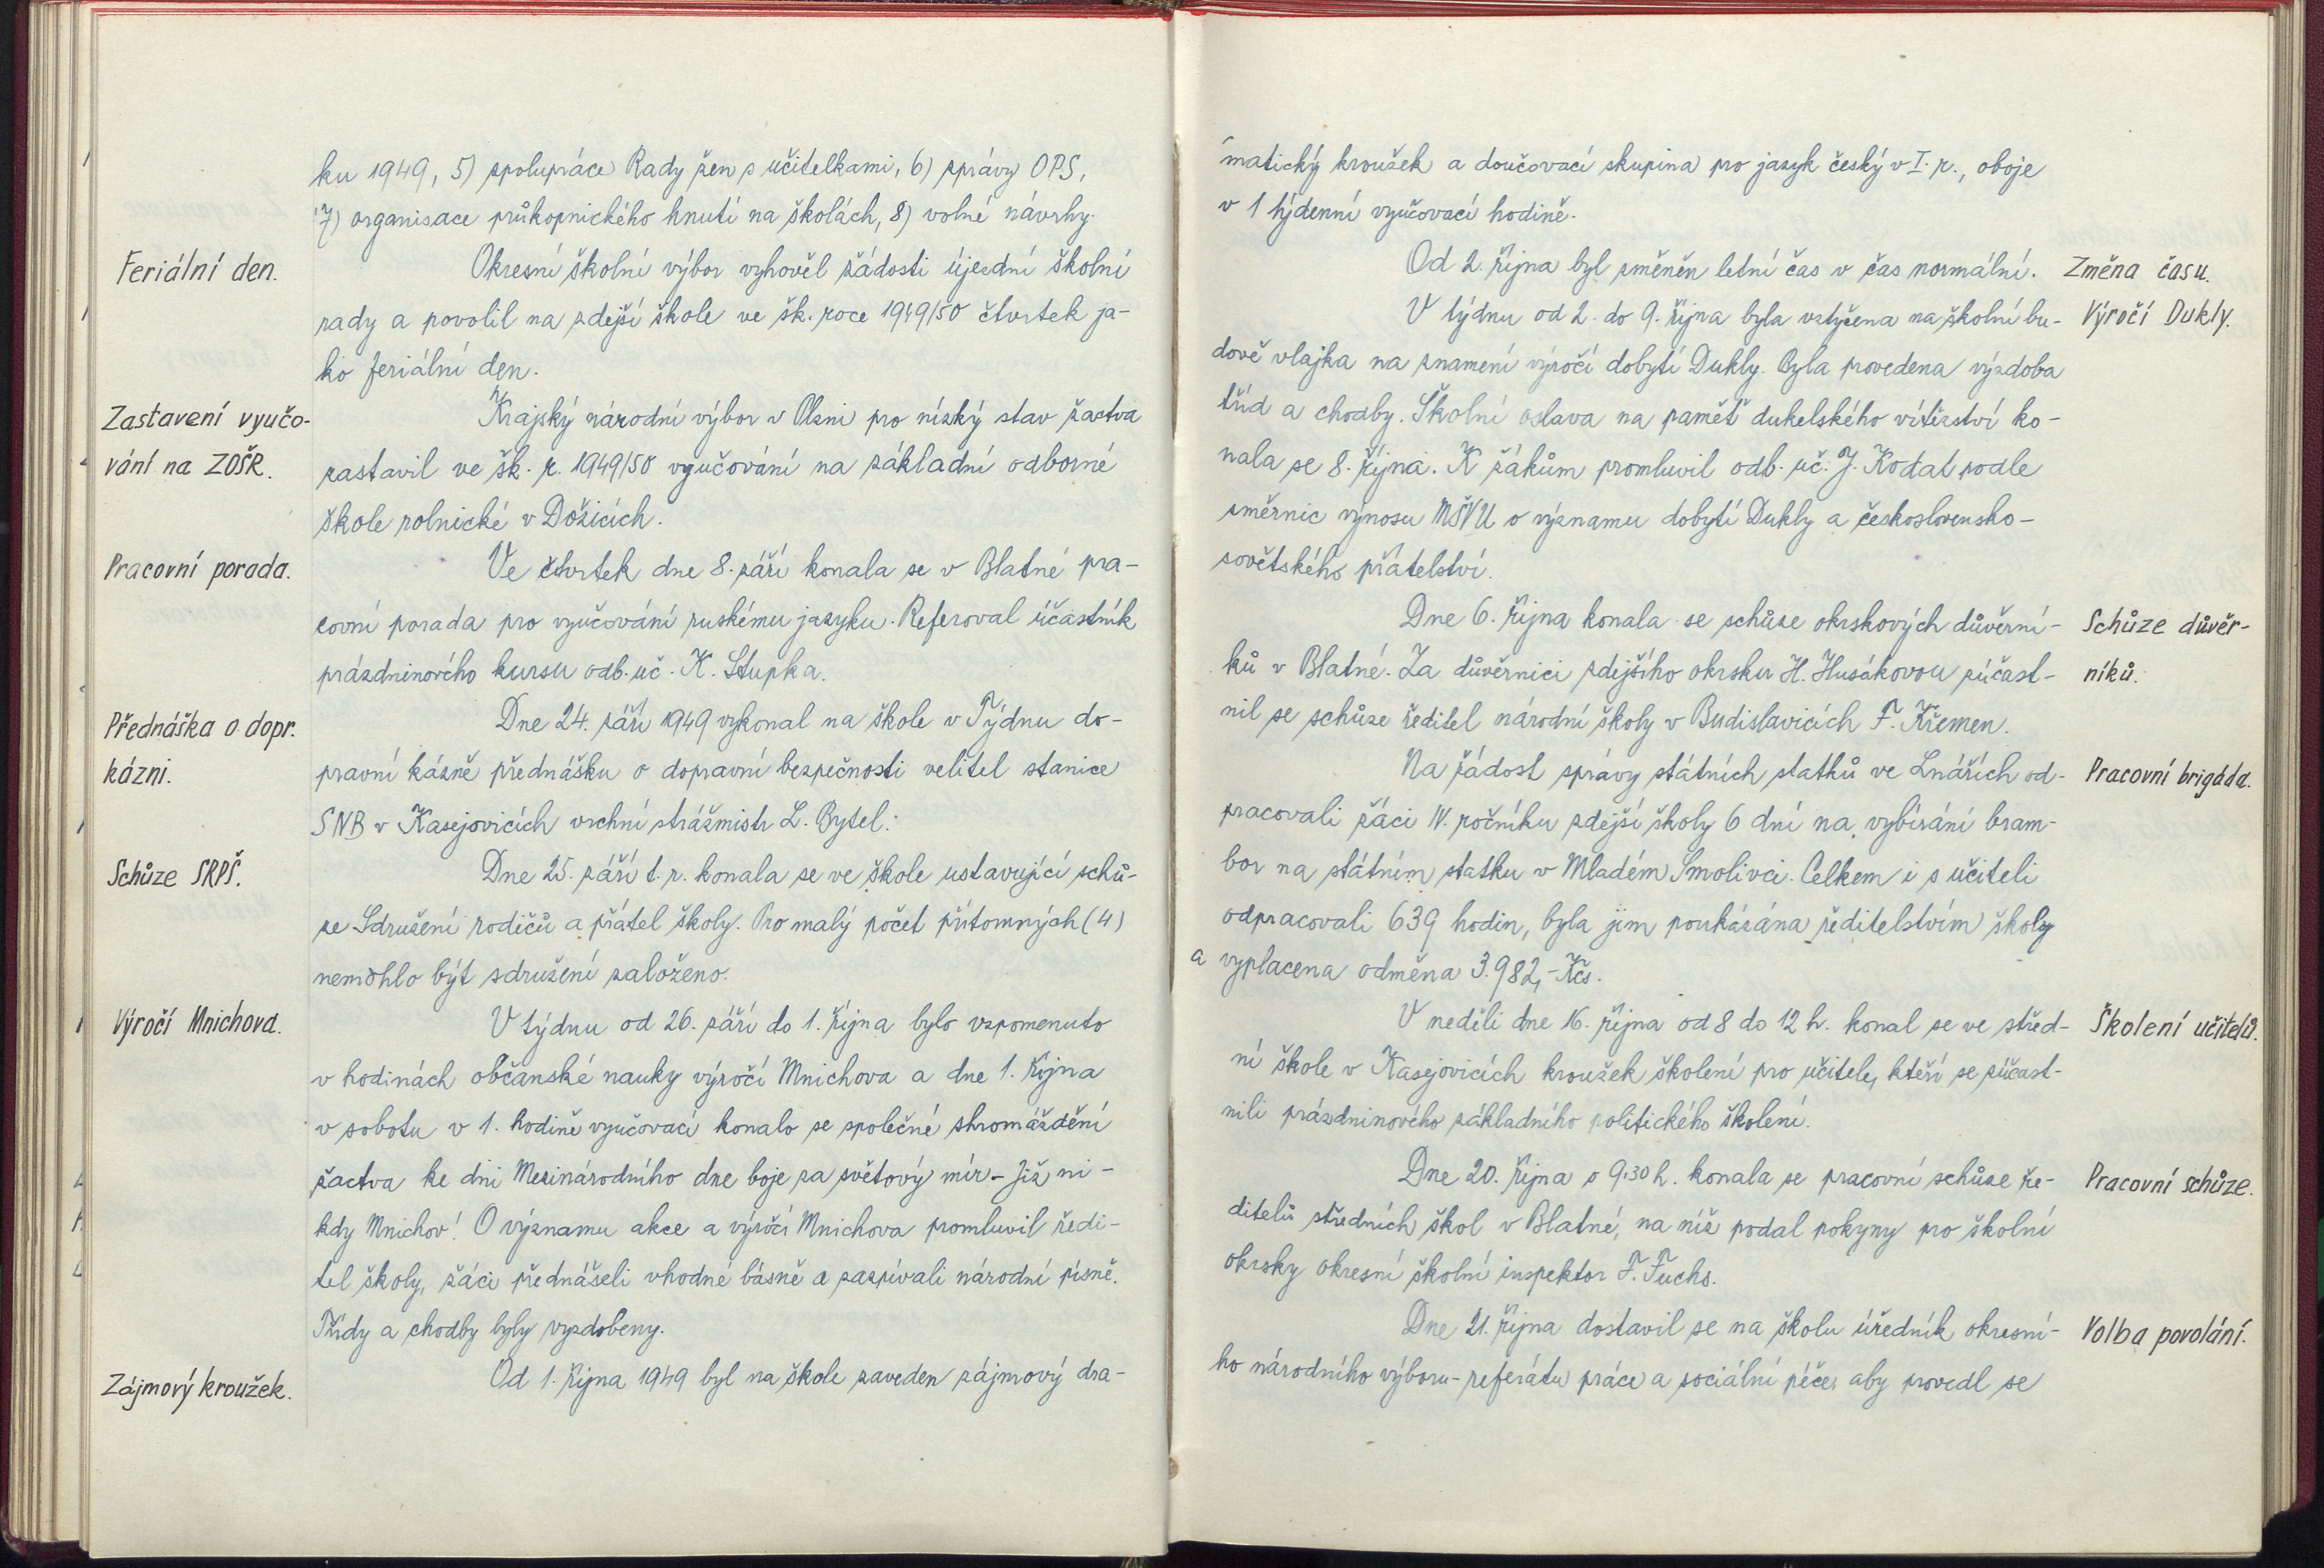 ku 1949, 5) spolupráce Rady žen s učitelkami, 6) zprávy OPS,
7) organisace průkopnického hnutí na školách, 8) volné návrhy.
Feriální den.
Okresní školní výbor vyhověl žádosti újezdní školní
rady a povolil na zdejší škole ve šk. roce 1949/50 čtvrtek ja-
ko feriální den.
Zastavení vyučo-
Krajský národní výbor v Plzni pro nízký stav žactva
vání na ZOŠR.
zastavil ve šk. r. 1949/50 vyučování na základní odborné
škole rolnické v Dožicích.
Pracovní porada.
Ve čtvrtek dne 8. září konala se v Blatné pra-
covní porada pro vyučování ruskému jazyku. Referoval účastník
prázdninového kursu odb. uč. K. Stupka.
Přednáška o dopr.
Dne 24. září 1949 vykonal na škole v Týdnu do-
kázni.
pravní kázně přednášku o dopravní bezpečnosti velitel stanice
SNB v Kasejovicích vrchní strážmistr L. Bytel.
Schůze SRPŠ.
Dne 25. září t. r. konala se ve škole ustavující schů-
ze Sdružení rodičů a přátel školy. Pro malý počet přítomných (4)
nemohlo být sdružení založeno.
Výročí Mnichova.
V týdnu od 26. září do 1. října bylo vzpomenuto
v hodinách občanské nauky výročí Mnichova a dne 1. října
v sobotu v 1. hodině vyučovací konalo se společné shromáždění
žactva ke dni Mezinárodního dne boje za světový mír - Již ni-
kdy Mnichov! O významu akce a výročí Mnichova promluvil ředi-
tel školy, žáci přednášeli vhodné básně a zazpívali národní písně.
Třídy a chodby byly vyzdobeny.
Zájmový kroužek.
Od 1. října 1949 byl na škole zaveden zájmový dra-
matický kroužek a doučovací skupina pro jazyk český v I. r., oboje
v 1 týdenní vyučovací hodině.
Od 2. října byl změněn letní čas v čas normální.
Změna času.
V týdnu od 2. do 9. října byla vztyčena na školní bu-
Výročí Dukly.
dově vlajka na znamení výročí dobytí Dukly. Byla provedena výzdoba
tříd a chodby. Školní oslava na paměť dukelského vítězství ko-
nala se 8. října. K žákům promluvil odb. uč. J. Kodat podle
směrnic výnosu MŠVU o významu dobytí Dukly a československo-
sovětského přátelství.
Dne 6. října konala se schůze okrskových důvěrní-
Schůze důvěr-
ků v Blatné. Za důvěrnici zdejšího okrsku H. Husákovou zúčast-
níků.
nil se schůze ředitel národní školy v Budislavicích F. Křemen.
Na žádost správy státních statků ve Lnářích od-
Pracovní brigáda.
pracovali žáci IV. ročníku zdejší školy 6 dní na vybírání bram-
bor na státním statku v Mladém Smolivci. Celkem i s učiteli
odpracovali 639 hodin, byla jim poukázána ředitelstvím školy
a vyplacena odměna 3.982,- Kčs.
V neděli dne 16. října od 8 do 12 h. konal se ve střed-
Školení učitelů.
ní škole v Kasejovicích kroužek školení pro učitele, kteří se zúčast-
nili prázdninového základního politického školení.
Dne 20. října o 9.30 h. konala se pracovní schůze ře-
Pracovní schůze.
ditelů středních škol v Blatné, na níž podal pokyny pro školní
okrsky okresní školní inspektor F. Fuchs.
Dne 21. října dostavil se na školu úředník okresní-
Volba povolání.
ho národního výboru - referátu práce a sociální péče, aby provedl se